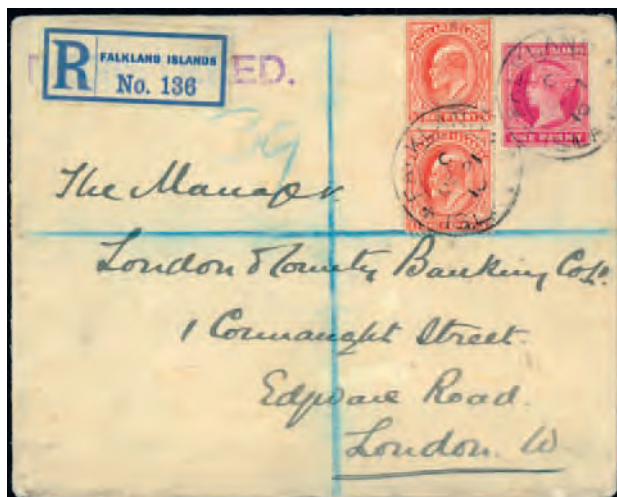 R FALKLAND ISLANDS
No. 136
ED.
ONE PENNY
The Manager
London & County Banking Co Ld.
1 Connaught Street.
Edgware Road.
London. W